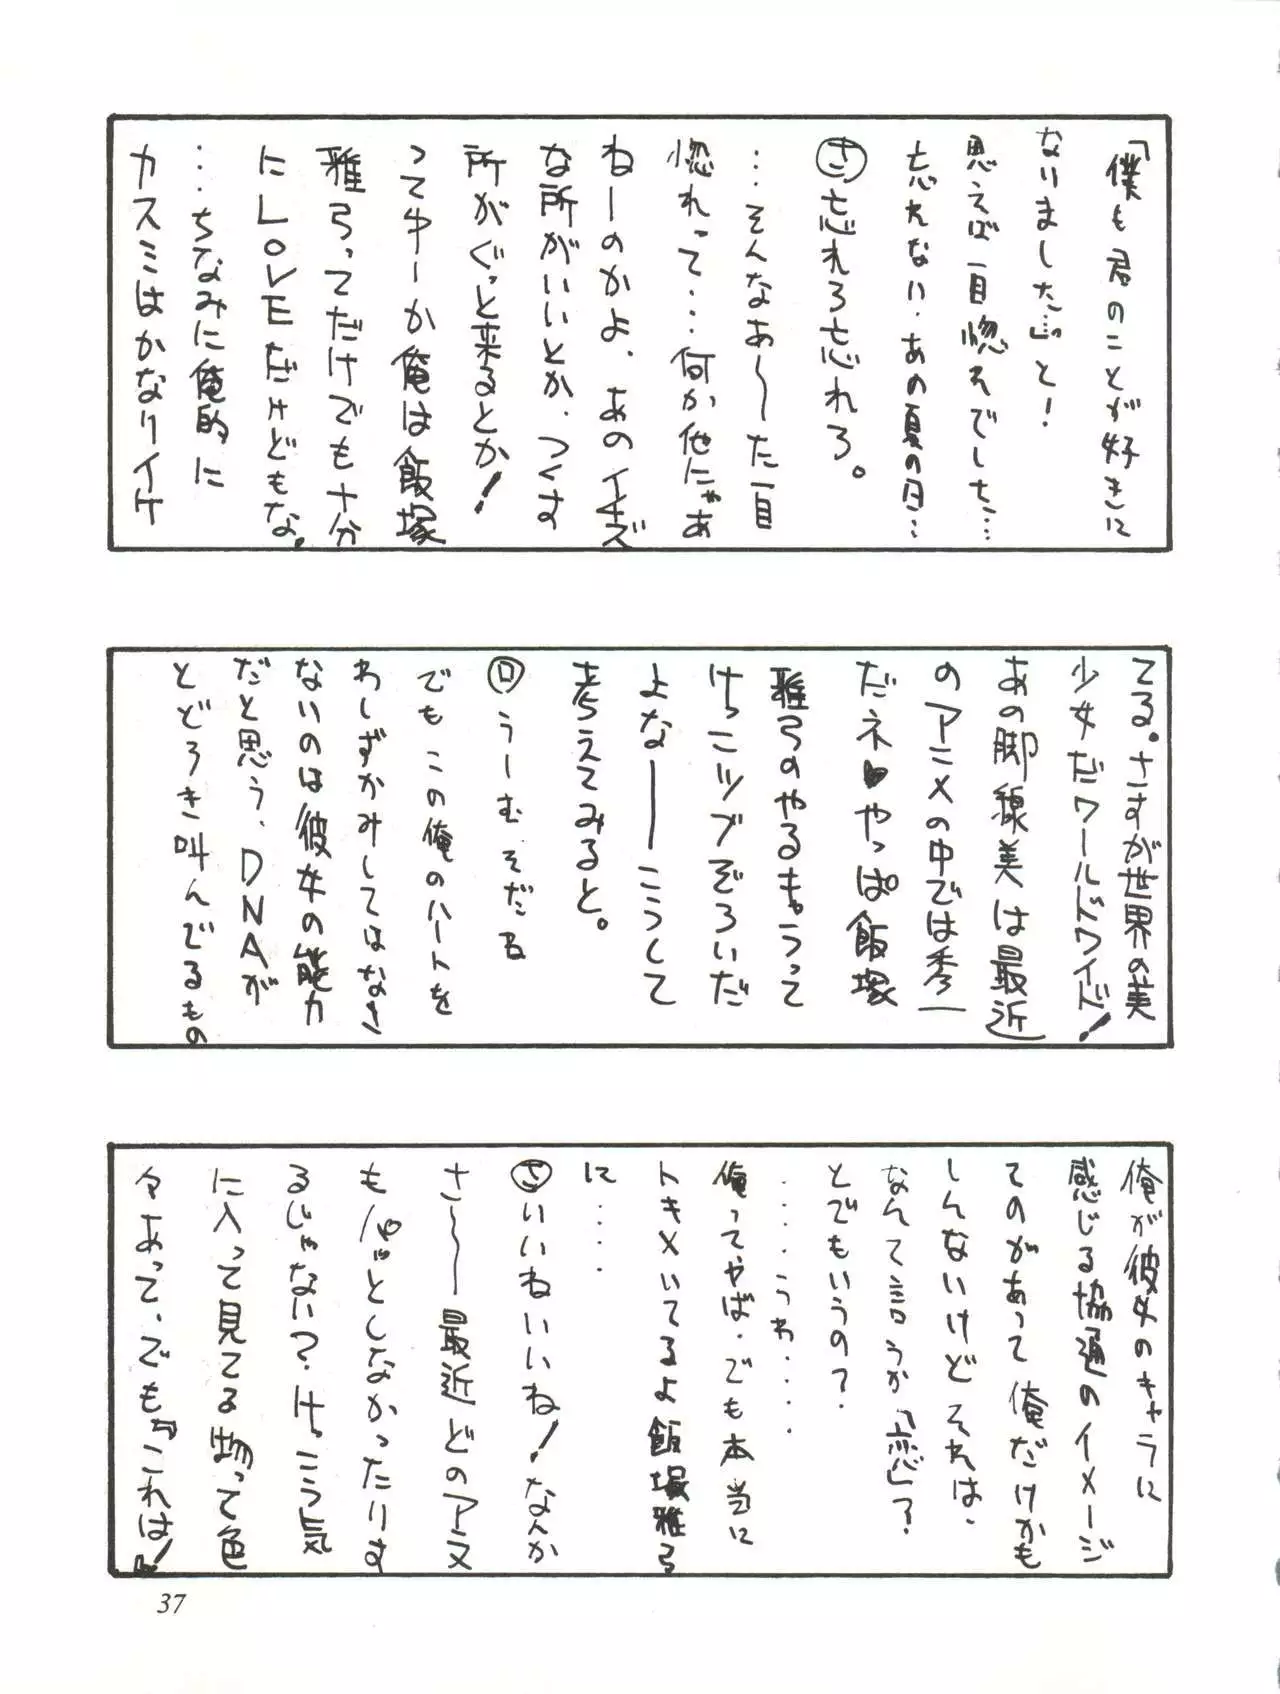 「僕も君のことが好きに
なりました…。」と!
思えば一目惚れでした…
忘れない、あの夏の日…
㋚忘れろ忘れろ。
…そんなあ〜〜た一目
惚れって…何か他にゃあ
ねーのかよ、あのイキズ
な所がいいとか、つくす
所がぐっと来るとか!
ってゆーか俺は飯塚
雅弓ってだけでも十分
にLOVEだけどもな。
…ちなみに俺的に
カスミはかなりイケ
てる。さすが世界の美
少女だワールドワイド!
あの脚線美は最近
のアニメの中では秀一
だネ♥やっぱ飯塚
雅弓のやるキャラって
けっこツブぞろいだ
よなー こうして
考えてみると。
㋺うーむそだね
でもこの俺のハートを
わしずかみしてはなさ
ないのは彼女の能力
だと思う、DNAが
とどろき叫んでるもの
俺が彼女のキャラに
感じる協通のイメージ
てのがあって俺だけかも
しんないけどそれは、
なんて言うか「恋」?
とでもいうの?
……うわ……
俺ってやば、でも本当に
トキメいてるよ飯塚雅弓
に……
㋚いいねいいね!なんか
さ〜〜最近どのアニメ
もパッとしなかったりす
るじゃない?けっこう気
に入って見てる物って色
々あって、でも『これは!』
37